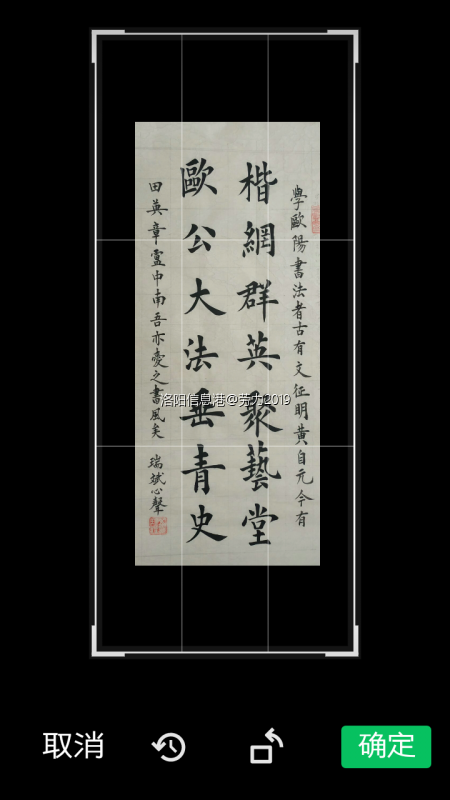 學歐陽書法者古有文征明黄自元今有
楷網群英聚藝堂
歐公大法垂青史
田英章靈中南吾亦愛之書風矣 瑞斌心聲
洛阳信息港@劳力2019
取消
确定